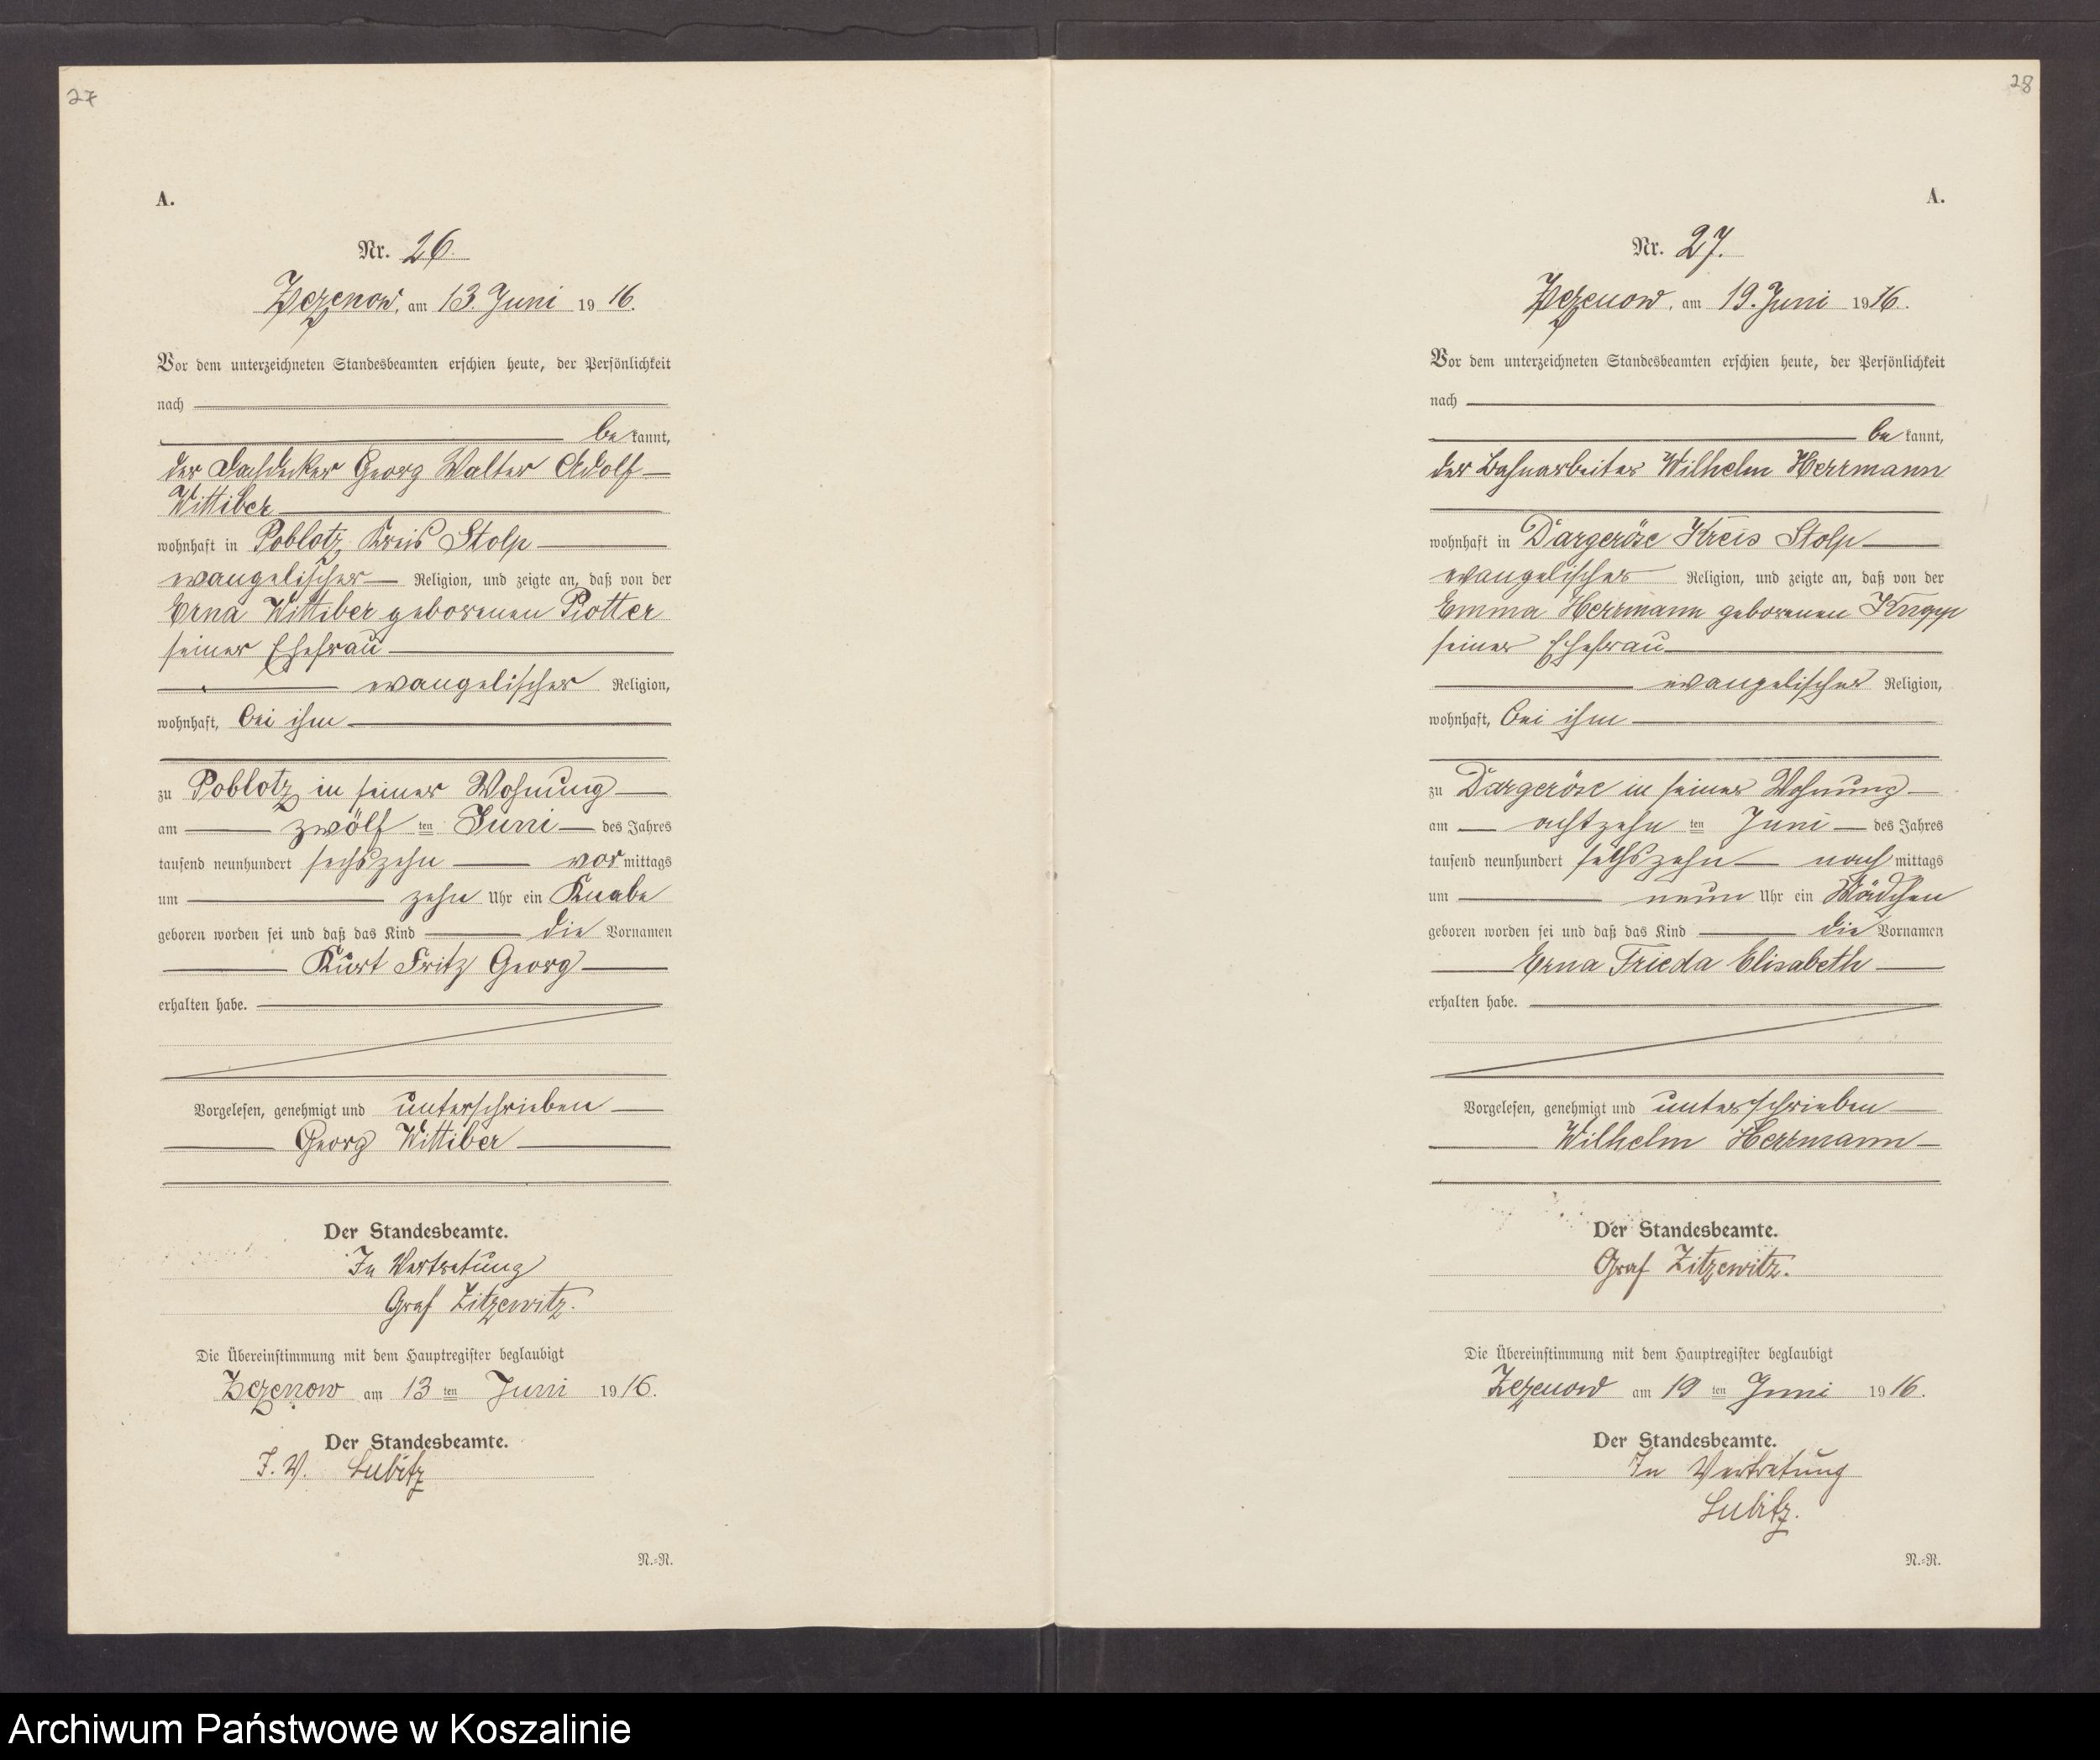 27
A.
Nr. 26.
Zezenow, am 13. Juni 1916.
Vor dem unterzeichneten Standesbeamten erschien heute, der Persönlichkeit
nach
be kannt,
der Dachdecker Georg Walter Adolf
Wittiber
wohnhaft in Poblotz Kreis Stolp
evangelischer Religion, und zeigte an, daß von der
Erna Wittiber geborenen Piotter
seiner Ehefrau
evangelischer Religion,
wohnhaft, bei ihm
zu Poblotz in seiner Wohnung
am zwölf ten Juni des Jahres
tausend neunhundert sechszehn vor mittags
um zehn Uhr ein Knabe
geboren worden sei und daß das Kind die Vornamen
Kurt Fritz Georg
erhalten habe.
Vorgelesen, genehmigt und unterschrieben
Georg Wittiber
Der Standesbeamte.
In Vertretung
Graf Zitzewitz.
Die Übereinstimmung mit dem Hauptregister beglaubigt
Zezenow am 13 ten Juni 1916.
Der Standesbeamte.
I. V. Lubitz
N.-R.
28
A.
Nr. 27.
Zezenow, am 19. Juni 1916.
Vor dem unterzeichneten Standesbeamten erschien heute, der Persönlichkeit
nach
be kannt,
der Bahnarbeiter Wilhelm Herrmann
wohnhaft in Dargeröse Kreis Stolp
evangelischer Religion, und zeigte an, daß von der
Emma Herrmann geborenen
seiner Ehefrau
evangelischer Religion,
wohnhaft, bei ihm
zu Dargeröse in seiner Wohnung
am achtzehn ten Juni des Jahres
tausend neunhundert sechszehn nach mittags
um neun Uhr ein Mädchen
geboren worden sei und daß das Kind die Vornamen
Erna Frieda Elisabeth
erhalten habe.
Vorgelesen, genehmigt und unterschrieben
Wilhelm Herrmann
Der Standesbeamte.
Graf Zitzewitz.
Die Übereinstimmung mit dem Hauptregister beglaubigt
Zezenow am 19 ten Juni 1916.
Der Standesbeamte.
In Vertretung
Lubitz.
N.-R.
Archiwum Państwowe w Koszalinie